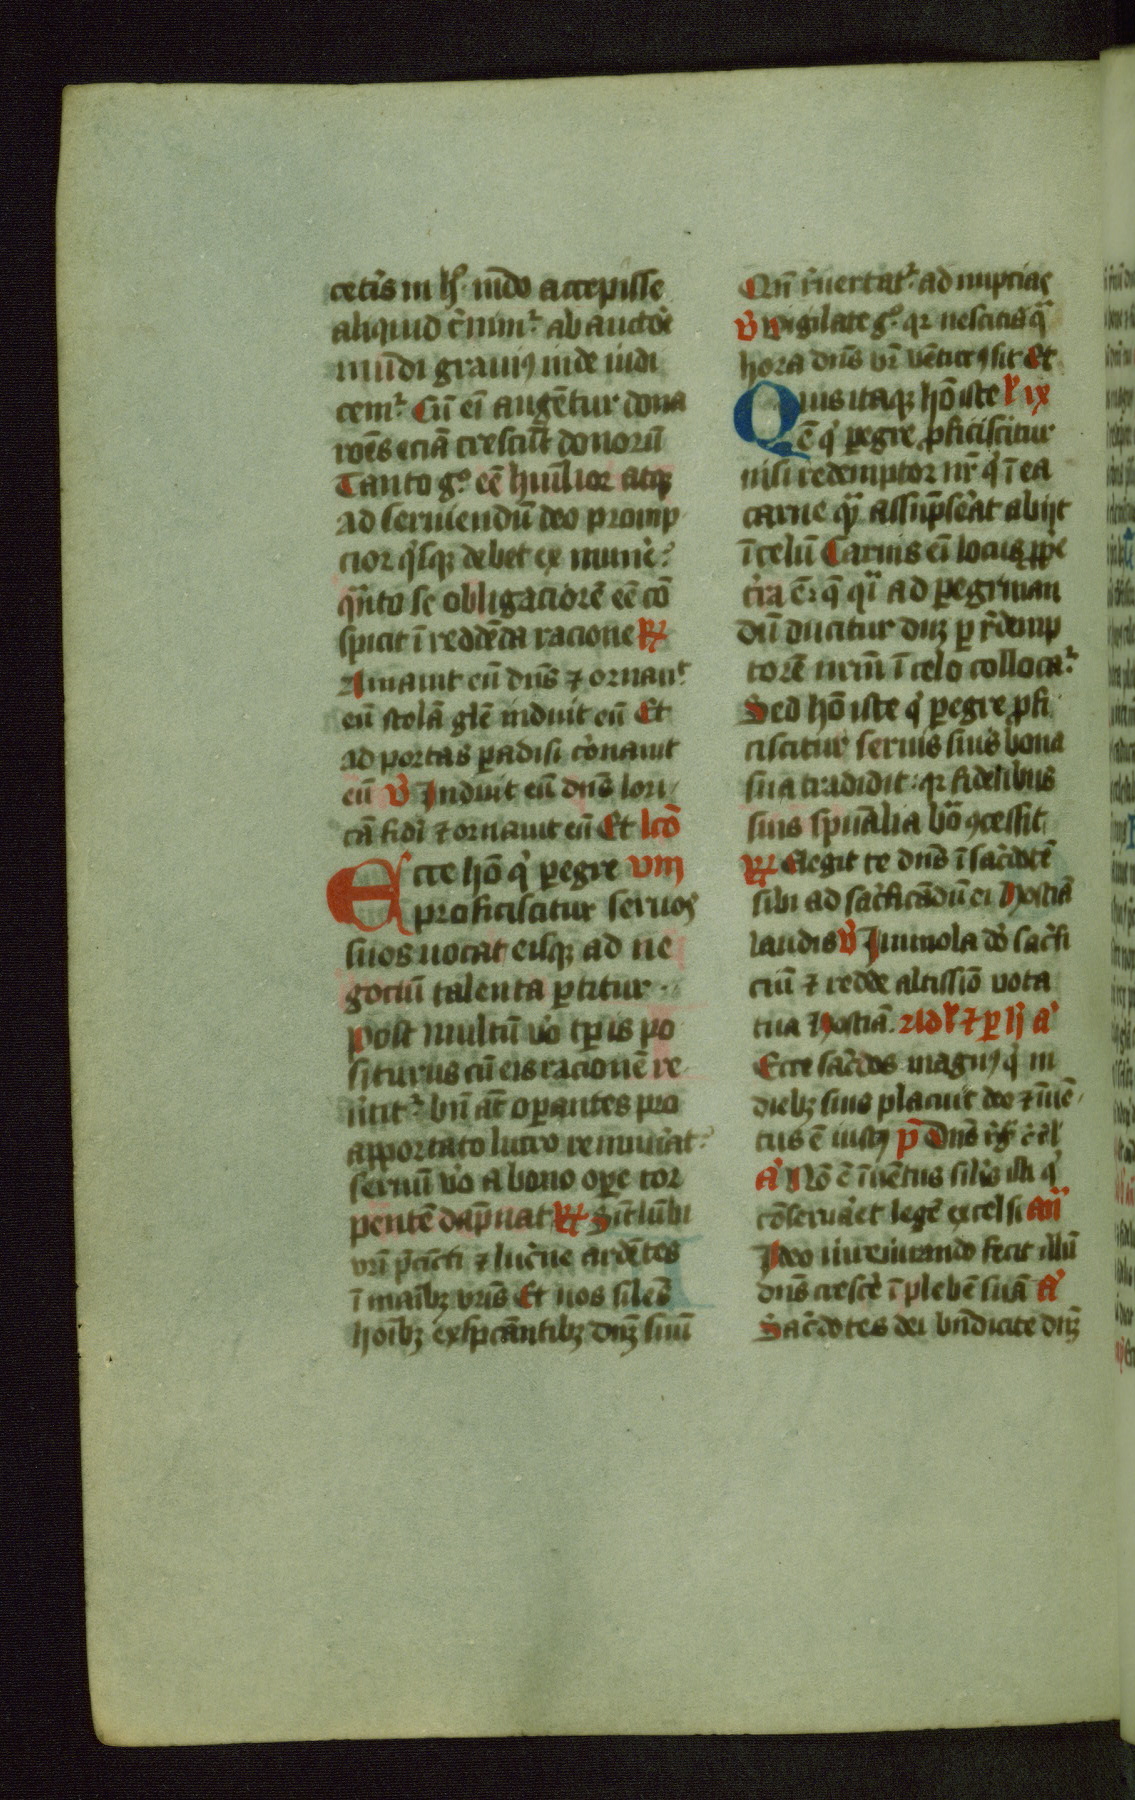 cetis in h̄ mūdo accepisse
aliquid c̄nimr ab auctōe
mūdi grauiꝰ inde iudi
cemr Cū eī augētur dona
rōes eciā crescūt donorū
Tanto gͦ eē hūilior atqꝫ
ad seruiendū deo promp
cior qͥsqꝫ debet ex munēe
qͣnto se obligaciorē eē cō
spicit ī reddēda racione R̸
Amauit eū dn̄s ⁊ ornauͭ
eū stolā glē induit eū Et
ad portas ꝑadisi cōnauit
eū V̄ Induit eū dn̄s lori
cā fidi ⁊ ornauit eū Et lcō
Ecce hō qͥ ꝑegre VIII
proficiscitur seruos
suos uocat eisqꝫ ad ne
gociū talenta ꝑtitur
Post multū vͦo tꝑis po
siturus cū eis racionē re
ùtitr bn̄ at̄ oꝑantes pro
apportato lucro remunāt
seruū vͦo a bono oꝑe tor
pentē dāpnat R̸ Sīt lūbi
vr̄i p̄cīcti ⁊ lucͬne ardētes
ī maībꝫ vr̄is Et uos siles̄
hoībꝫ exspctāntibꝫ dn̄ꝫ suū
Qn̄ rͥuertatͬ ad nupcias
V̄ Vigilate gͦ qꝛ nescitis qͣ
hora dn̄s vr̄ vēturꝰ sit Et
Quis itaqꝫ hō iste l̄ ix
ē qͥ ꝑegre ꝓficiscitur
nisi redemptor nr̄ qͥ ī ea
carne qͣ assūpseāt abijt
ī celū Carnis eī locus ꝓpͥe
tr̄a ē· q̄ qͣi ad ꝑegrinan
dū ducitur dūꝫ ꝑ rͤdemp
torē nr̄m ī celo collocaͭ
Sed hō iste qͥ ꝑegre ꝓfi
ciscitur seruis suis bona
sua tradidit qꝛ fidelibus
suis spūalia bōa ꝯcessit
R̸ Elegit te dn̄s ī sacͬdotē
sibi ad sacͬficādū ei hostiā
laudis V̄ Immola dō sacͬfi
ciū ⁊ redde altissīo vota
tua hostiā Ad l̄ ⁊ ꝑ h̄ aͣ
Ecce sacͬdos magnꝰ qͥ in
diebꝫ suis placuit deo ⁊ īuē
tus ē iustꝰ p̄s Dn̄s rͤḡ c̄ cͤl
aͣ Nō ē īuētus silis illi qͥ
cōseruāet legē excelsi aͣn
Ideo iureiurando fecit illū
dn̄s crescēe ī plebē suā aͣ
Sacͬdotes dei bn̄dicite dn̄ꝫ